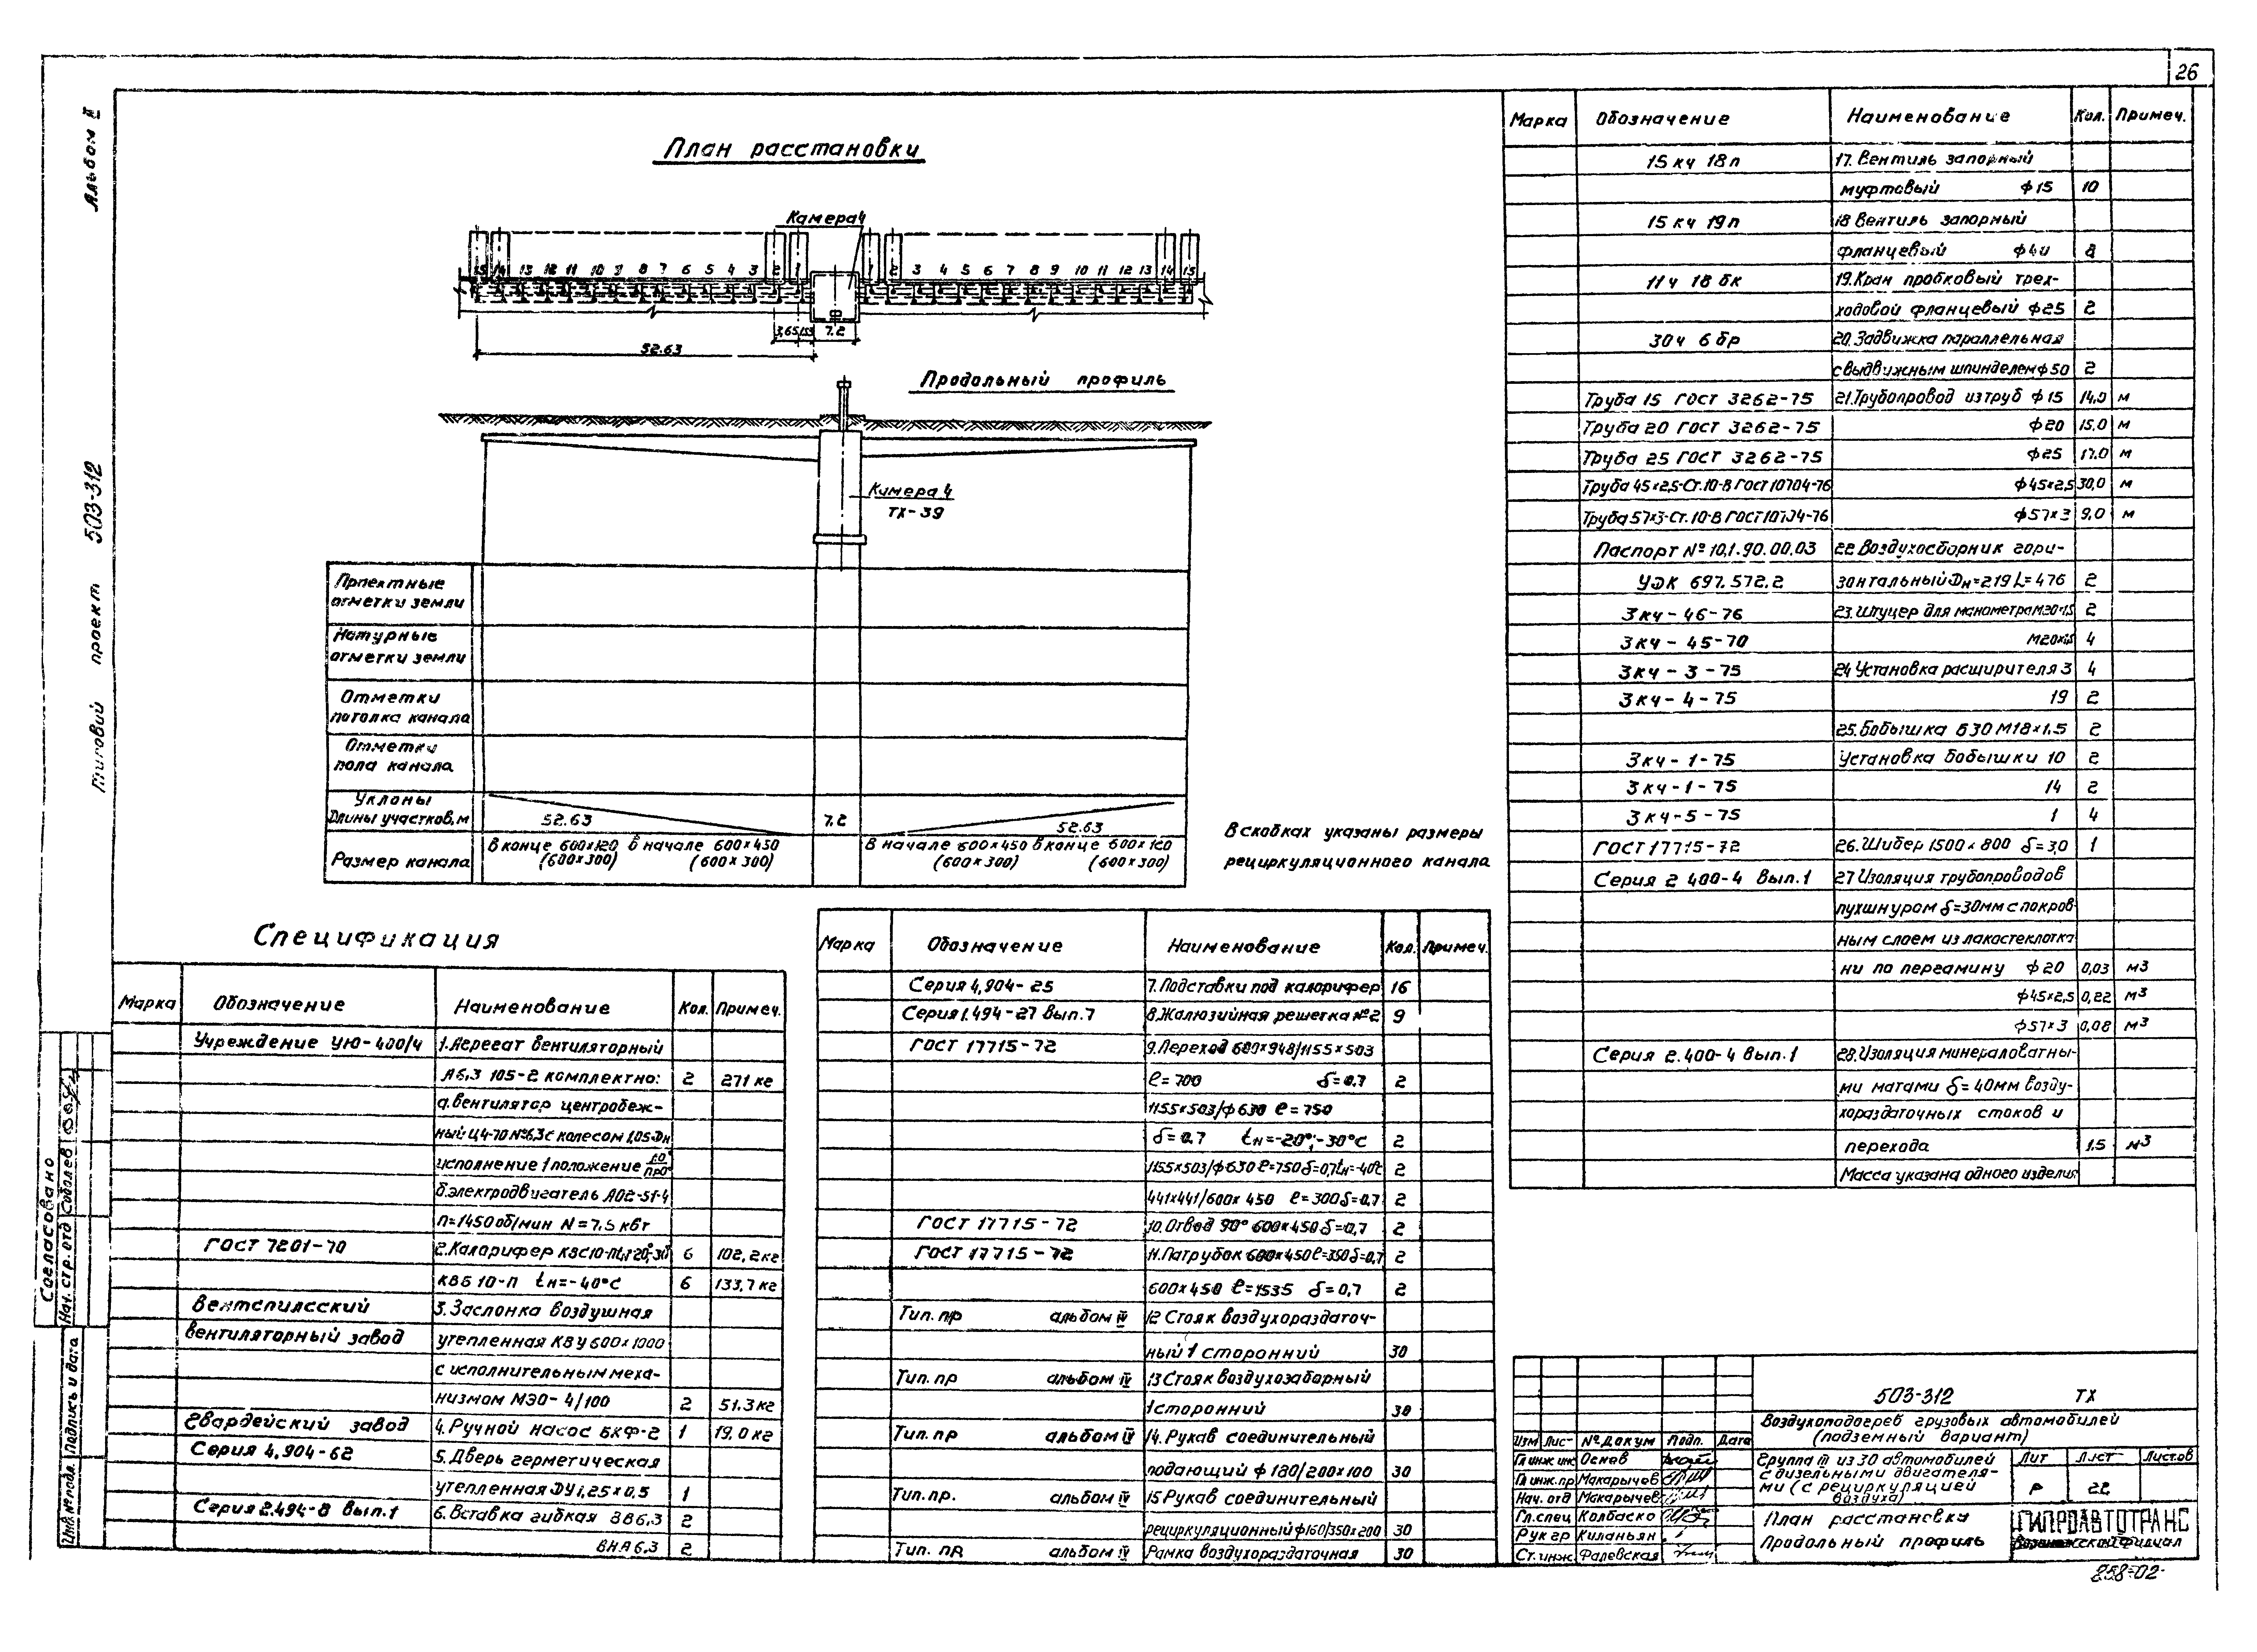 26
Альбом II
Типовой проект 503-312
План расстановки
Камера 4
15 14 13 12 11 10 9 8 7 6 5 4 3 2 1
1 2 3 4 5 6 7 8 9 10 11 12 13 14 15
7.2
52.63
Продольный профиль
Камера 4
ТХ-39
Проектные
отметки земли
Натурные
отметки земли
Отметки
потолка канала
Отметки
пола канала
Уклоны
Длины участков, м
52.63
7.2
52.63
Размер канала
В конце 600×120 В начале 600×450
(600×300) (600×300)
В начале 600×450 В конце 600×120
(600×300) (600×300)
В скобках указаны размеры
рециркуляционного канала
Спецификация
Марка Обозначение Наименование Кол. Примеч.
Учреждение УЮ-400/4 1. Агрегат вентиляторный
А6,3 105-2 комплектно: 2 271 кг
а. вентилятор центробеж-
ный Ц4-70 №6,3 с колесом 1,05 Дн
исполнение 1 положение
б. электродвигатель А02-51-4
n=1450 об/мин N=7.5 квт
ГОСТ 7201-70 2. Калорифер 6 102,2кг
КВБ 10-П tн=-40°С 6 133,7кг
Вентспилсский 3. Заслонка воздушная
вентиляторный завод утепленная КВУ 600×1000
с исполнительным меха-
низмом МЭО-4/100 2 51.3кг
Гвардейский завод 4. Ручной насос БКФ-2 1 19,0кг
Серия 4,904-62 5. Дверь герметическая
утепленная ДУ 1,25×0,5 1
Серия 2.494-8 Вып.1 6. Вставка гибкая ВВ6,3 2
ВНА6,3 2
Марка Обозначение Наименование Кол. Примеч.
Серия 4,904-25 7. Подставки под калорифер 16
Серия 1.494-27 Вып.7 8. Жалюзийная решетка №2 9
ГОСТ 17715-72 9. Переход 600×948/1155×503
ℓ=700 δ=0,7 2
1155×503/ф630 ℓ=750
δ=0,7 tн=-20°;-30°С 2
1155×503/ф630 ℓ=750 δ=0,7 tн=-40°С 2
441×441/600×450 ℓ=300 δ=0,7 2
ГОСТ 17715-72 10. Отвод 90° 600×450 δ=0,7 2
ГОСТ 17715-72 11. Патрубок 600×450 ℓ=350 δ=0,7 2
600×450 ℓ=1535 δ=0,7 2
Тип. пр альбом IV 12 Стояк воздухораздаточ-
ный 1 сторонний 30
Тип. пр альбом IV 13 Стояк воздухозаборный
1 сторонний 30
Тип. пр альбом IV 14. Рукав соединительный
подающий ф 180/200×100 30
Тип. пр. альбом IV 15 Рукав соединительный
рециркуляционный ф160/350×200 30
Тип. пр альбом IV Рамка воздухораздаточная 30
Марка Обозначение Наименование Кол. Примеч.
15 кч 18 п 17. Вентиль запорный
муфтовый ф15 10
15 кч 19 п 18 Вентиль запорный
фланцевый ф40 8
11 ч 18 бк 19. Кран пробковый трех-
ходовой фланцевый ф25 2
30 ч 6 бр 20. Задвижка параллельная
с выдвижным шпинделем ф50 2
Труба 15 ГОСТ 3262-75 21. Трубопровод из труб ф15 14,0 м
Труба 20 ГОСТ 3262-75 ф20 15,0 м
Труба 25 ГОСТ 3262-75 ф25 17.0 м
Труба 45×2,5-Ст.10-В ГОСТ 10704-76 ф45×2,5 30,0 м
Труба 57×3-Ст.10-В ГОСТ 10704-76 ф57×3 9,0 м
Паспорт № 10,1.90.00.03 22 Воздухосборник гори-
УДК 697.572.2 зонтальный Дн=219 L=476 2
3кч-46-76 23. Штуцер для манометра 2
3кч-45-70 М20×1,5 4
3кч-3-75 24 Установка расширителя 3 4
3кч-4-75 19 2
25. Бобышка Б30 М18×1.5 2
3кч-1-75 Установка бобышки 10 2
3кч-1-75 14 2
3кч-5-75 1 4
ГОСТ 17715-72 26. Шибер 1500×800 δ=3,0 1
Серия 2 400-4 Вып.1 27 Изоляция трубопроводов
пухшнуром δ=30мм с покров
ным слоем из лакостеклотка
ни по пергамину ф20 0,03 м3
ф45×2,5 0,22 м3
ф57×3 0,08 м3
Серия 2.400-4 Вып.1 28. Изоляция минераловатны-
ми матами δ=40мм возду-
хораздаточных стоков и
перехода 1.5 м3
Масса указана одного изделия
Согласовано
Нач. стр. отд Соболев
Подпись и дата
Инв.№ подл.
503-312 ТХ
Воздухоподогрев грузовых автомобилей
(подземный вариант)
Изм Лис- №Докум Подп. Дата
Гл инж инс Основ
Гл инж. пр Макарычев
Нач. отд Макарычев
Гл. спец Колбаско
Рук гр Киланьян
Ст. инж Фалевская
Группа III из 30 автомобилей
с дизельными двигателя-
ми (с рециркуляцией
воздуха)
Лит Лист Листов
Р 22
План расстановки
Продольный профиль
ГИПРОАВТОТРАНС
филиал
258-02